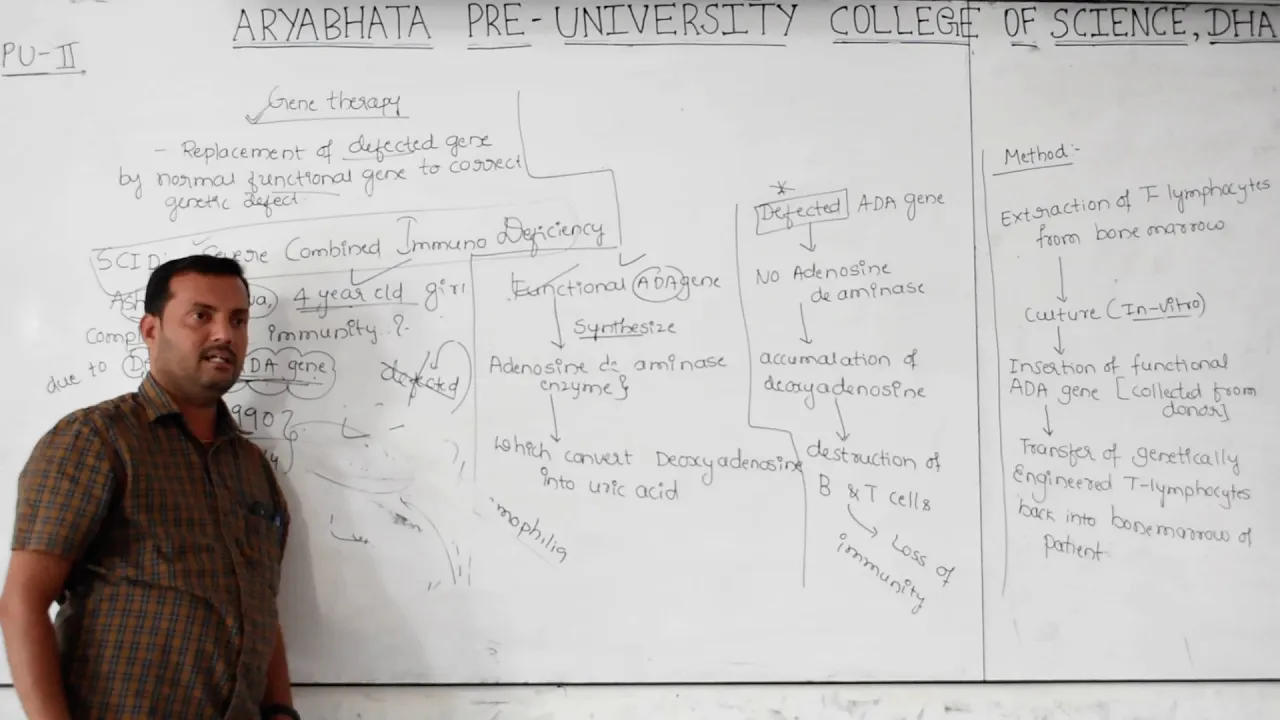 ARYABHATA PRE-UNIVERSITY COLLEGE OF SCIENCE, DHA
PU-II
Gene therapy
- Replacement of defected gene
by normal functional gene to correct
genetic defect.
SCID Severe Combined Immuno Deficiency
4 year old girl
immunity..?
due to
DA gene
defected
990
Functional ADA gene
Synthesize
Adenosine de aminase
enzyme}
Which convert Deoxyadenosine
into uric acid
mophilia
*
Defected ADA gene
NO Adenosine
de aminase
accumalation of
deoxyadenosine
destruction of
B & T cells
Loss of
immunity
Method:-
Extraction of T lymphocytes
from bone marrow
Culture (In-vitro)
Insertion of functional
ADA gene [collected from
donor]
Transfer of genetically
engineered T-lymphocytes
back into bonemarrow of
patient.